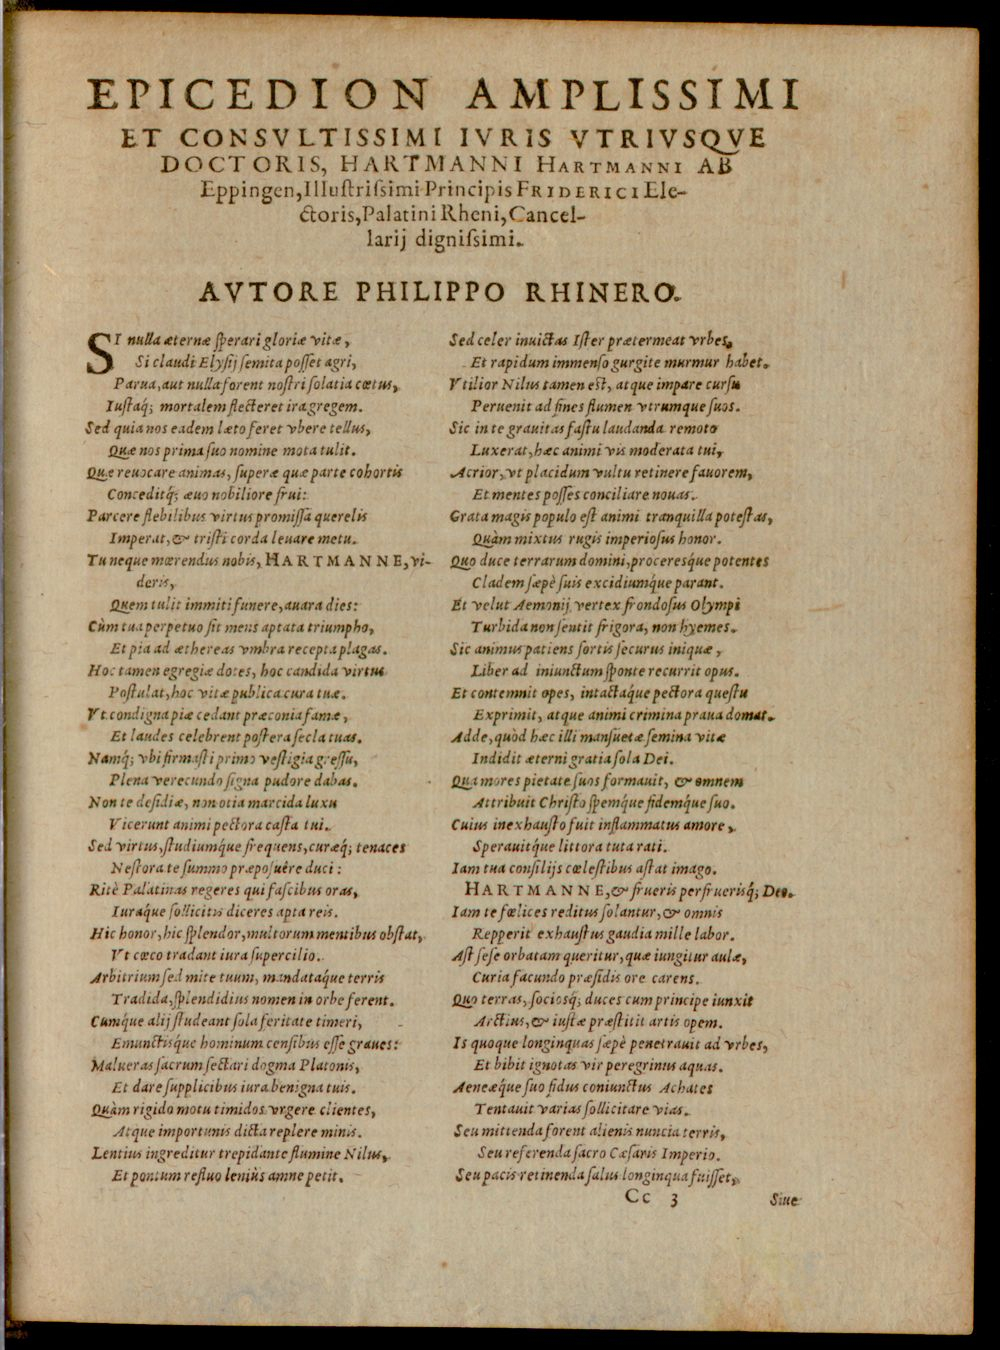 EPICEDION AMPLISSIMI
ET CONSVLTISSIMI IVRIS VTRIVSQVE
DOCTORIS, HARTMANNI HARTMANNI AB
Eppingen, Illustrissimi Principis FRIDERICI Ele-
ctoris, Palatini Rheni, Cancel-
larij dignissimi.
AVTORE PHILIPPO RHINERO.
SI nulla æternæ sperari gloriæ vitæ,
Si claudi Elysij semita posset agri,
Parua, aut nulla forent nostri solatia cœtus,
Iustaq; mortalem flecteret ira gregem.
Sed quia nos eadem læto feret vbere tellus,
Quæ nos prima suo nomine mota tulit.
Quæ reuocare animas, superæ quæ parte cohortis
Conceditq; æuo nobiliore frui:
Parcere flebilibus virtus promissa querelis
Imperat, & tristi corda leuare metu.
Tu neque mœrendus nobis, HARTMANNE, vi-
deris,
Quem tulit immiti funere, auara dies:
Cùm tua perpetuo sit mens aptata triumpho,
Et pia ad æthereas vmbra recepta plagas.
Hoc tamen egregiæ dotes, hoc candida virtus
Postulat, hoc vitæ publica cura tuæ.
Vt condigna piæ cedant præconia famæ,
Et laudes celebrent postera secla tuas.
Namq; vbi firmasti primo vestigia gressu,
Plena verecundo signa pudore dabas.
Non te desidiæ, non otia marcida luxu
Vicerunt animi pectora casta tui.
Sed virtus, studiumque frequens, curæq; tenaces
Nestora te summo præposuêre duci:
Ritè Palatinas regeres qui fascibus oras,
Iuraque sollicitis diceres apta reis.
Hic honor, hic splendor, multorum mentibus obstat,
Vt cœco tradant iura supercilio.
Arbitrium sed mite tuum, mandataque terris
Tradida, splendidius nomen in orbe ferent.
Cumque alij studeant sola feritate timeri,
Emunctisque hominum censibus esse graues:
Malueras sacrum sectari dogma Platonis,
Et dare supplicibus iura benigna tuis.
Quàm rigido motu timidos vrgere clientes,
Atque importunis dicta replere minis.
Lentius ingreditur trepidante flumine Nilus,
Et pontum refluo leniùs amne petit.
Sed celer inuictas Ister prætermeat vrbes,
Et rapidum immenso gurgite murmur habet.
Vtilior Nilus tamen est, atque impare cursu
Peruenit ad fines flumen vtrumque suos.
Sic in te grauitas fastu laudanda remoto
Luxerat, hæc animi vis moderata tui,
Acrior, vt placidum vultu retinere fauorem,
Et mentes posses conciliare nouas.
Grata magis populo est animi tranquilla potestas,
Quàm mixtus rugis imperiosus honor.
Quo duce terrarum domini, proceresque potentes
Cladem sæpè suis excidiumque parant.
Et velut Aemonij vertex frondosus Olympi
Turbida non sentit frigora, non hyemes.
Sic animus patiens sortis securus iniquæ,
Liber ad iniunctum sponte recurrit opus.
Et contemnit opes, intactaque pectora questu
Exprimit, atque animi crimina praua domat.
Adde, quòd hæc illi mansuetæ semina vitæ
Indidit æterni gratia sola Dei.
Qua mores pietate suos formauit, & omnem
Attribuit Christo spemque fidemque suo.
Cuius inexhausto fuit inflammatus amore,
Sperauitque littora tuta rati.
Iam tua consilijs cœlestibus astat imago.
HARTMANNE, & frueris perfruerisq; Deo.
Iam te fœlices reditus solantur, & omnis
Repperit exhaustus gaudia mille labor.
Ast sese orbatam queritur, quæ iungitur aulæ,
Curia facundo præsidis ore carens.
Quo terras, sociosq; duces cum principe iunxit
Arctius, & iustæ præstitit artis opem.
Is quoque longinquas sæpè penetrauit ad vrbes,
Et bibit ignotas vir peregrinus aquas.
Aeneæque suo fidus coniunctus Achates
Tentauit varias sollicitare vias.
Seu mittenda forent alienis nuncia terris,
Seu referenda sacro Cæsaris Imperio.
Seu pacis retinenda salus longinqua fuisset,
Cc 3 Siue